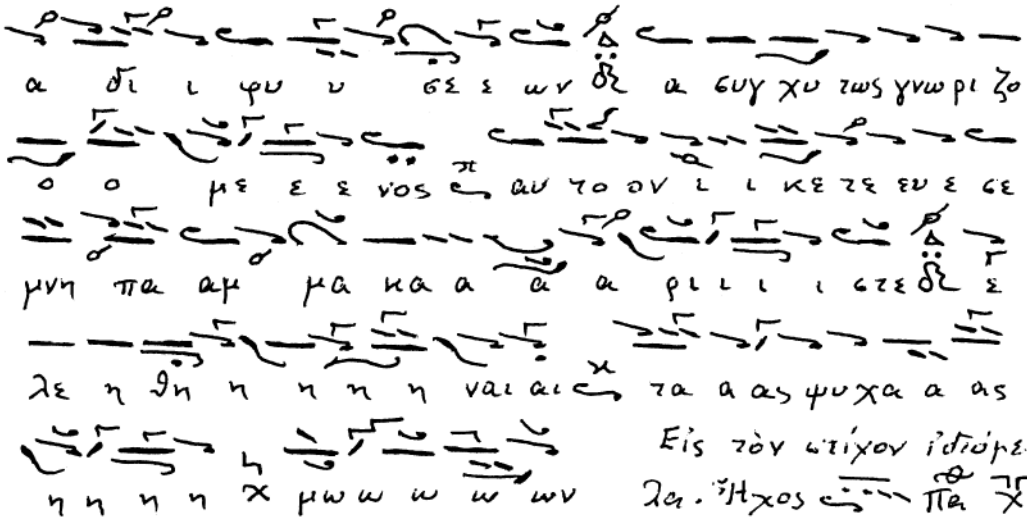 α δι ι φυ υ σε ε ων δι α συγ χυ τως γνω ρι ζο
ο ο με ε ε νος π αυ το ον ι ι κε τε ευ ε σε
μνη πα αμ μα κα α α α ρι ι ι ι στε δι ε
λε η θη η η η η ναι αι χ τα α ας ψυ χα α ας
η η η η χ μω ω ω ω ων Εἰς τὸν στίχον ἰδιόμε
λα. Ἦχος Πα χ